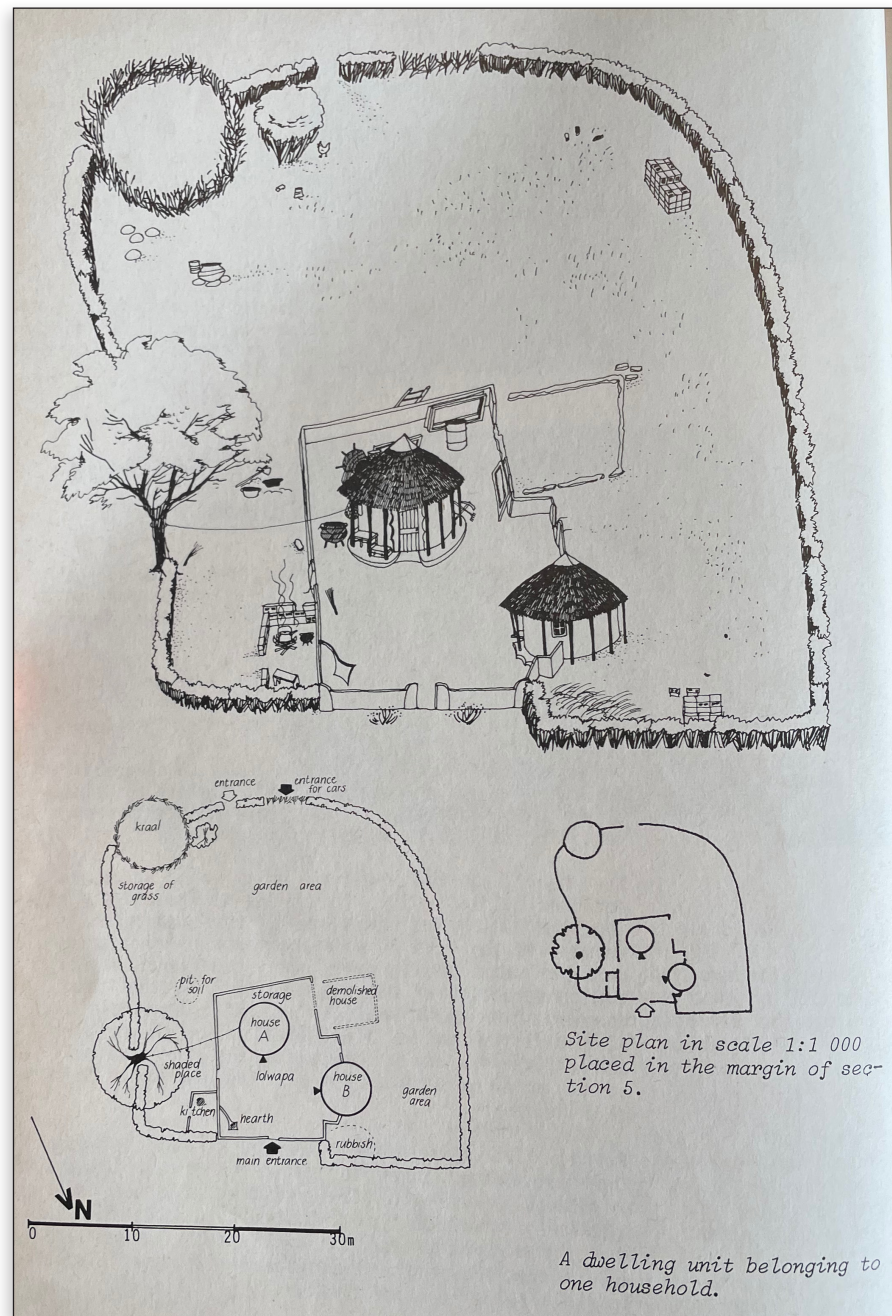 entrance
entrance
for cars
kraal
storage of
grass
garden area
pit for
soil
storage
demolished
house
house
A
shaded
place
lolwapa
house
B
garden
area
kitchen
hearth
rubbish
main entrance
N
0 10 20 30m
Site plan in scale 1:1 000
placed in the margin of sec-
tion 5.
A dwelling unit belonging to
one household.